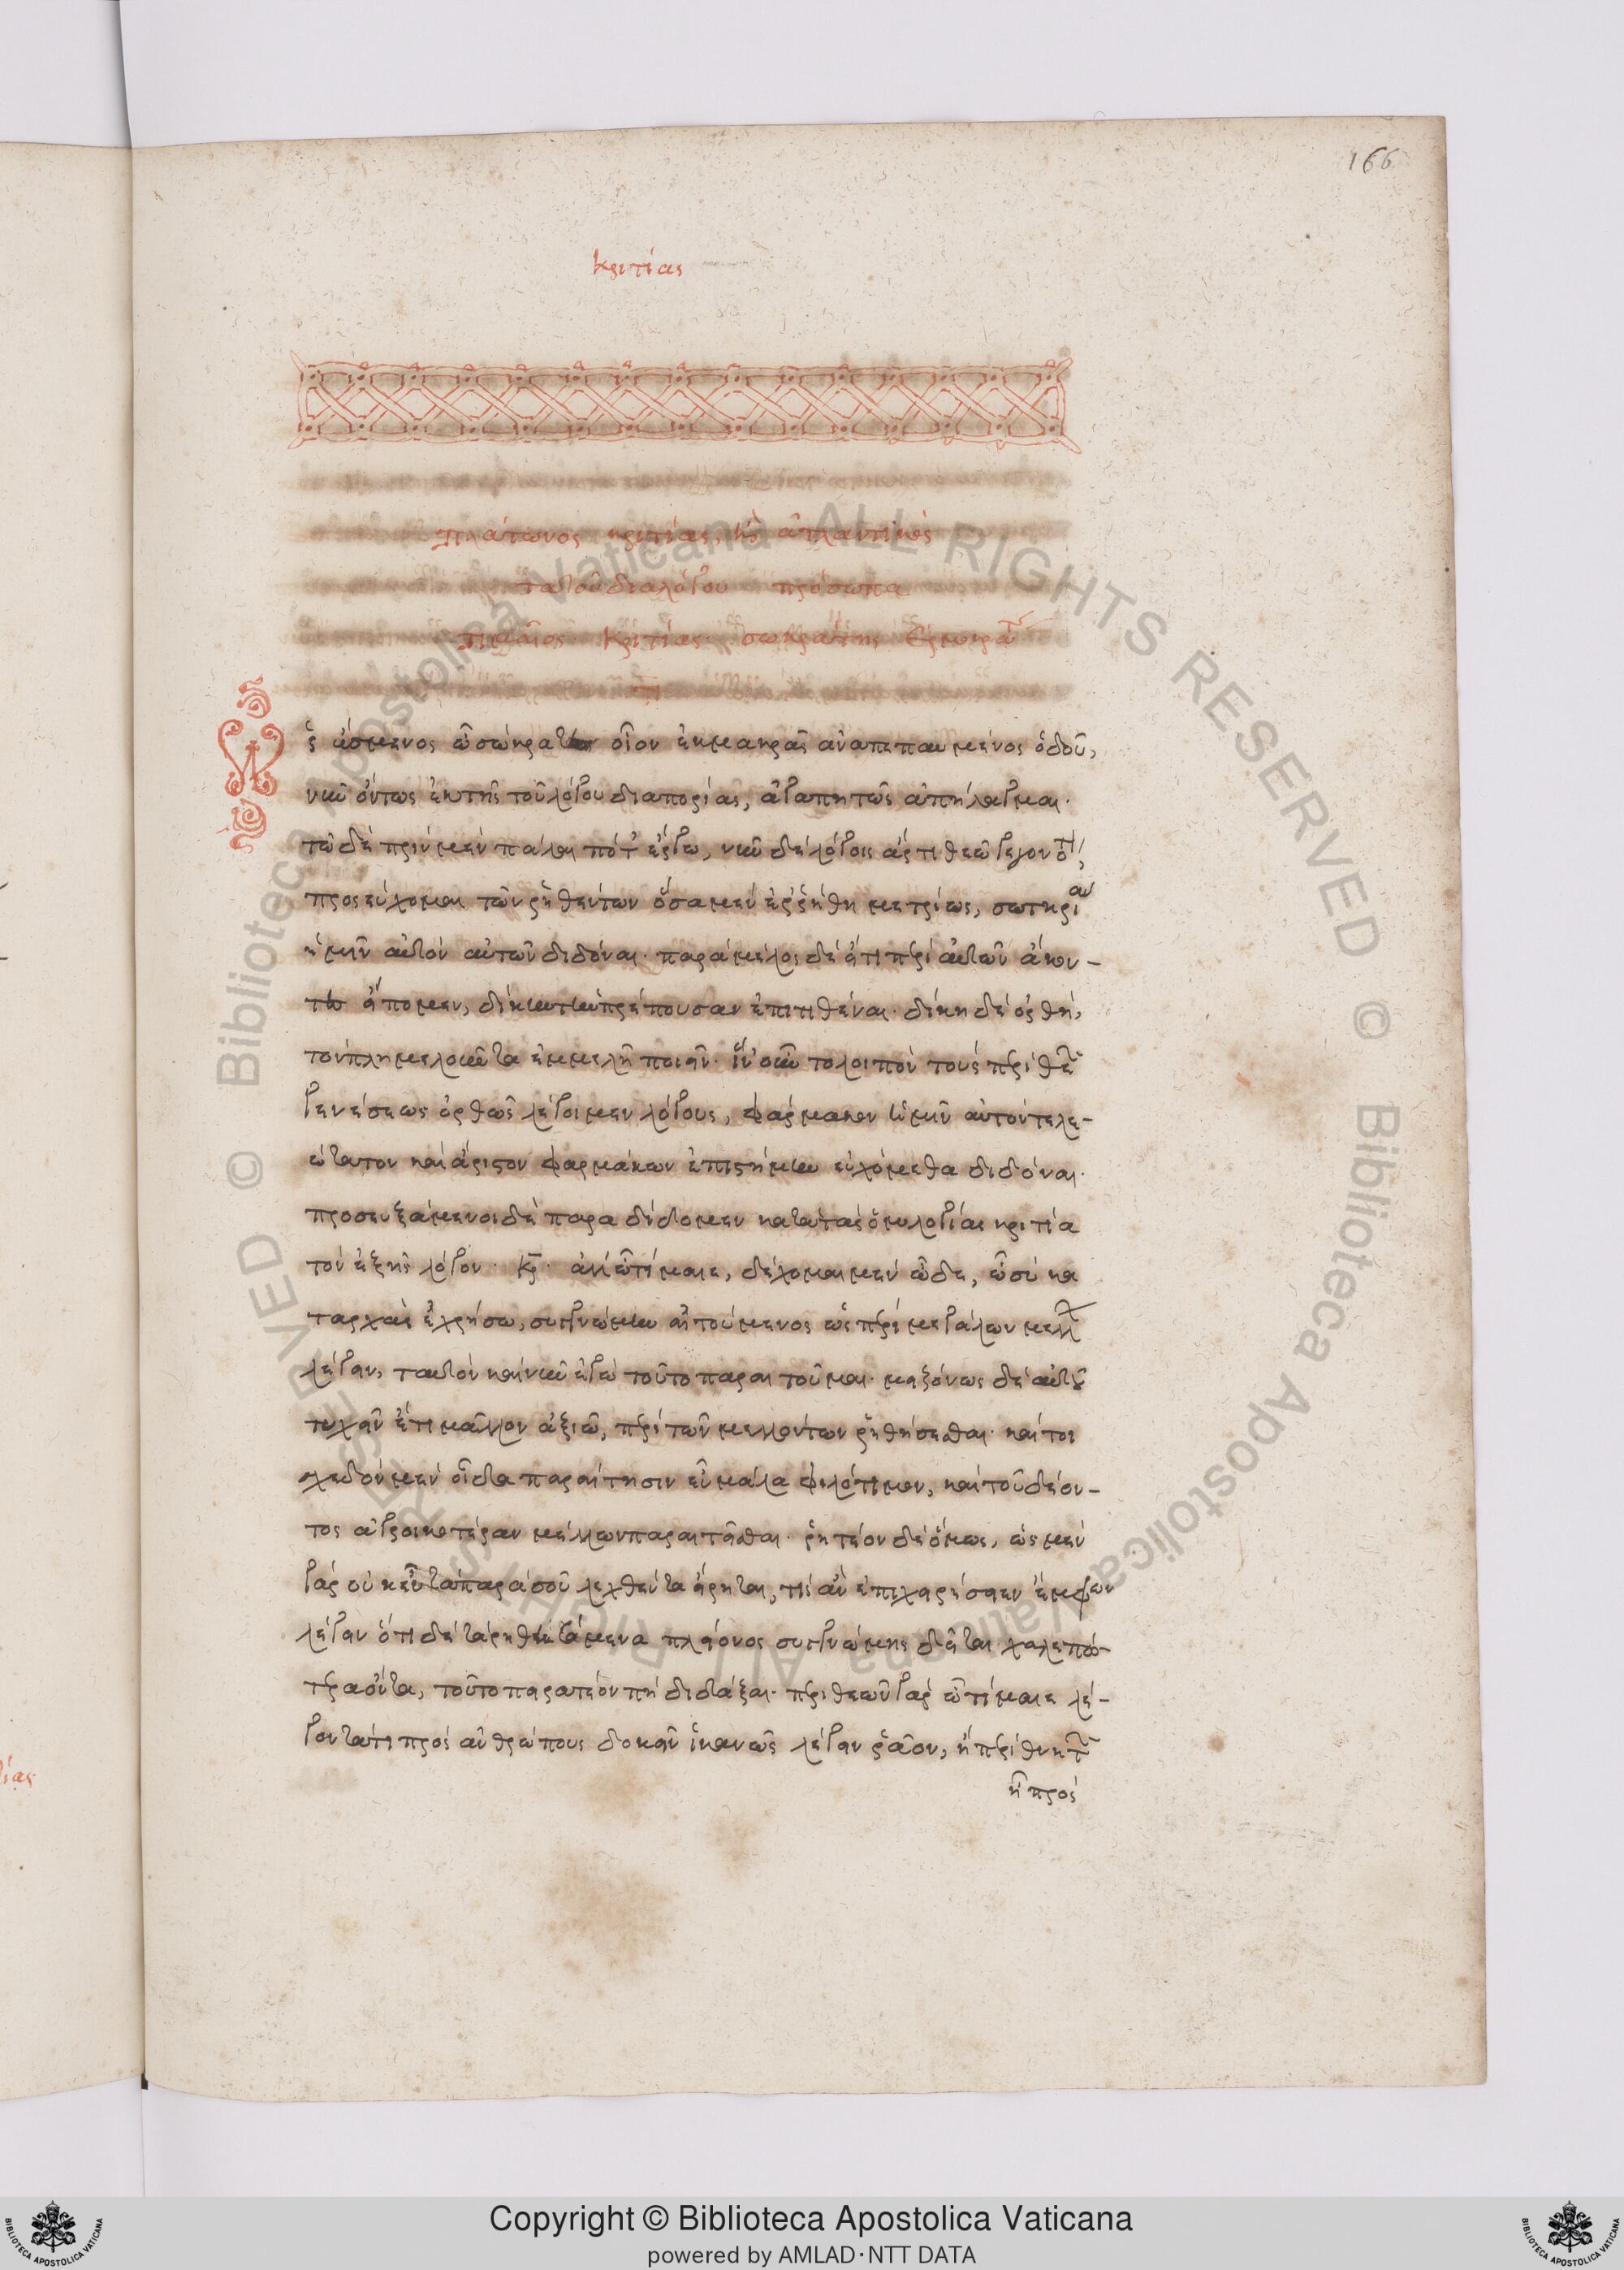 166
κριτίας
πλάτωνος κριτίας, ἢ ἀτλαντικός
τὰ τοῦ διαλόγου πρόσωπα
τίμαιος κριτίας σωκράτης ἑρμοκράτ
Ὡς ἄσμενος ὦ σώκρατες οἷον ἐκ μακρᾶς ἀναπεπαυμένος ὁδοῦ,
νῦν ὄντως ἐκ τῆς τοῦ λόγου διαπορίας, ἀγαπητῶς ἀπήλλαγμαι.
τῷ δὲ πρὶν μὲν πάλαι πότ ἔργῳ, νῦν δὲ λόγοις ἄρτι θεῷ γεγονότι,
προσεύχομαι τῶν ῥηθέντων ὅσα μὲν ἐρρήθη μετρίως, σωτηρίαν
ἡμῖν αὐτὸν αὐτῶν διδόναι. παρὰ μέλος δὲ εἴ τι περὶ αὐτῶν ἄκον-
τες εἴπομεν, δίκην τὴν πρέπουσαν ἐπιτιθέναι. δίκη δὲ ὀρθὴ,
τὸν πλημμελοῦντα ἐμμελῆ ποιεῖν. ἵν' οὖν τολοιπὸν τοὺς περὶ θεῶν
γενέσεως ὀρθῶς λέγοιμεν λόγους, φάρμακον ἡμῖν αὐτὸν τελε-
ώτατον καὶ ἄριστον φαρμάκων ἐπιστήμην εὐχόμεθα διδόναι.
προσευξάμενοι δὲ παραδίδομεν κατὰ τὰς ὁμολογίας κριτία
τὸν ἑξῆς λόγον. Κρ. ἀλλ' ὦ τίμαιε, δέχομαι μὲν ὧδε, ὧ σὺ κα
ταρχὰς ἐχρήσω, συγγνώμην αἰτούμενος ὡς περὶ μεγάλων μέλλων
λέγειν, ταυτὸν καὶ νῦν ἐγὼ τοῦτο παραιτοῦμαι. μειζόνως δὲ αὐτοῦ
τυχεῖν ἔτι μᾶλλον ἀξιῶ, περὶ τῶν μελλόντων ῥηθήσεσθαι. καίτοι
σχεδὸν μὲν οἶδα παραίτησιν εὖ μάλα φιλότιμον, καὶ τοῦ δέον-
τος ἀγροικοτέραν μέλλων παραιτεῖσθαι. ῥητέον δὲ ὅμως, ὡς μὲν
γὰρ οὐκ εὖ τὰ παρὰ σοῦ λεχθέντα εἴρηται, τίς ἂν ἐπιχειρήσειεν ἔμφρων
λέγειν ὅτι δὲ τὰ ῥηθησόμενα πλείονος συγγνώμης δεῖται χαλεπώ-
τερα ὄντα, τοῦτο πειρατέον πῃ διδάξαι. περὶ θεῶν γὰρ ὦ τίμαιε λέ-
γοντά τι πρὸς ἀνθρώπους δοκεῖν ἱκανῶς λέγειν ῥᾷον, ἢ περὶ θνητῶν
ἢ πρὸς